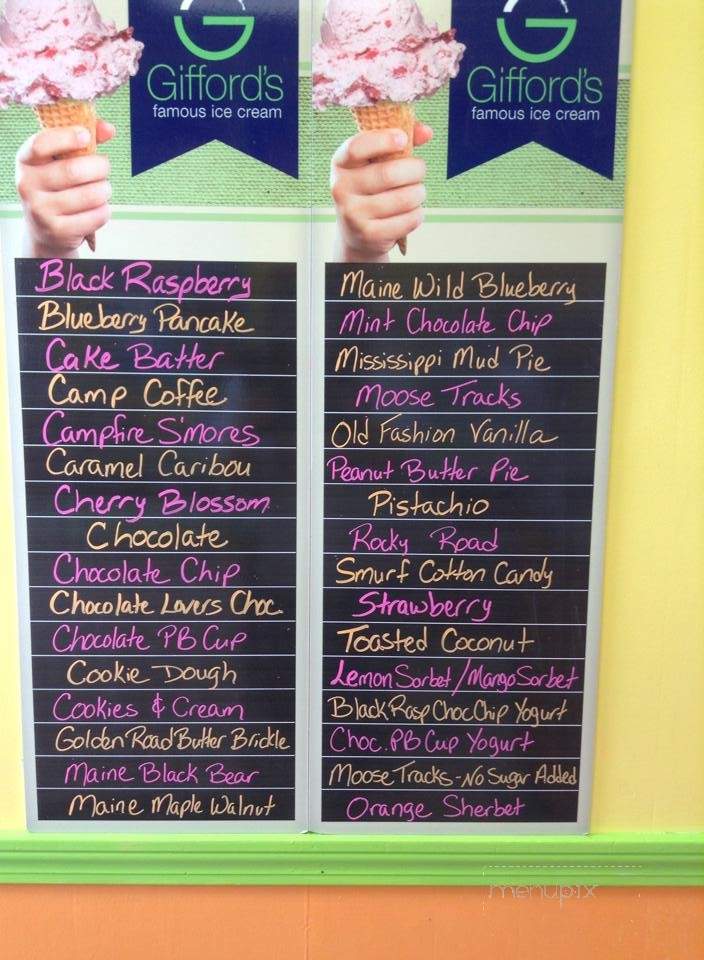 Gifford's
famous ice cream
Gifford's
famous ice cream
Black Raspberry
Blueberry Pancake
Cake Batter
Camp Coffee
Campfire S'mores
Caramel Caribou
Cherry Blossom
Chocolate
Chocolate Chip
Chocolate Lovers Choc.
Chocolate PB Cup
Cookie Dough
Cookies & Cream
Golden Road Butter Brickle
Maine Black Bear
Maine Maple Walnut
Maine Wild Blueberry
Mint Chocolate Chip
Mississippi Mud Pie
Moose Tracks
Old Fashion Vanilla
Peanut Butter Pie
Pistachio
Rocky Road
Smurf Cotton Candy
Strawberry
Toasted Coconut
Lemon Sorbet / Mango Sorbet
Black Rasp Choc Chip Yogurt
Choc. PB Cup Yogurt
Moose Tracks - No Sugar Added
Orange Sherbet
menupix